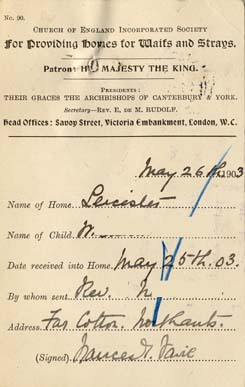 No. 90.
CHURCH OF ENGLAND INCORPORATED SOCIETY
For Providing Homes for Waifs and Strays.
Patron: HIS MAJESTY THE KING.
PRESIDENTS:
THEIR GRACES THE ARCHBISHOPS OF CANTERBURY & YORK.
Secretary—REV. E. DE M. RUDOLF.
Head Offices: Savoy Street, Victoria Embankment, London, W.C.
May 26th 1903
Name of Home Leicester
Name of Child W.
Date received into Home May 25th. 03.
By whom sent Rev. N
Address Far Cotton. Northants.
(Signed) Frances